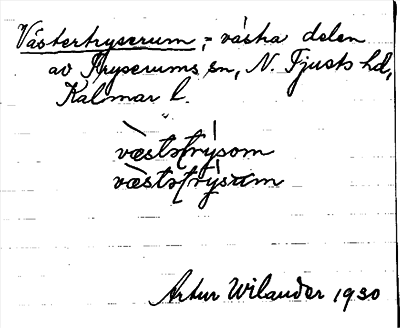 Västertryserum, = västra delen
av Tryserums sn, N. Tjusts hd,
Kalmar l.
væstətrýsom
væstətrýsam
Artur Wilander 1930